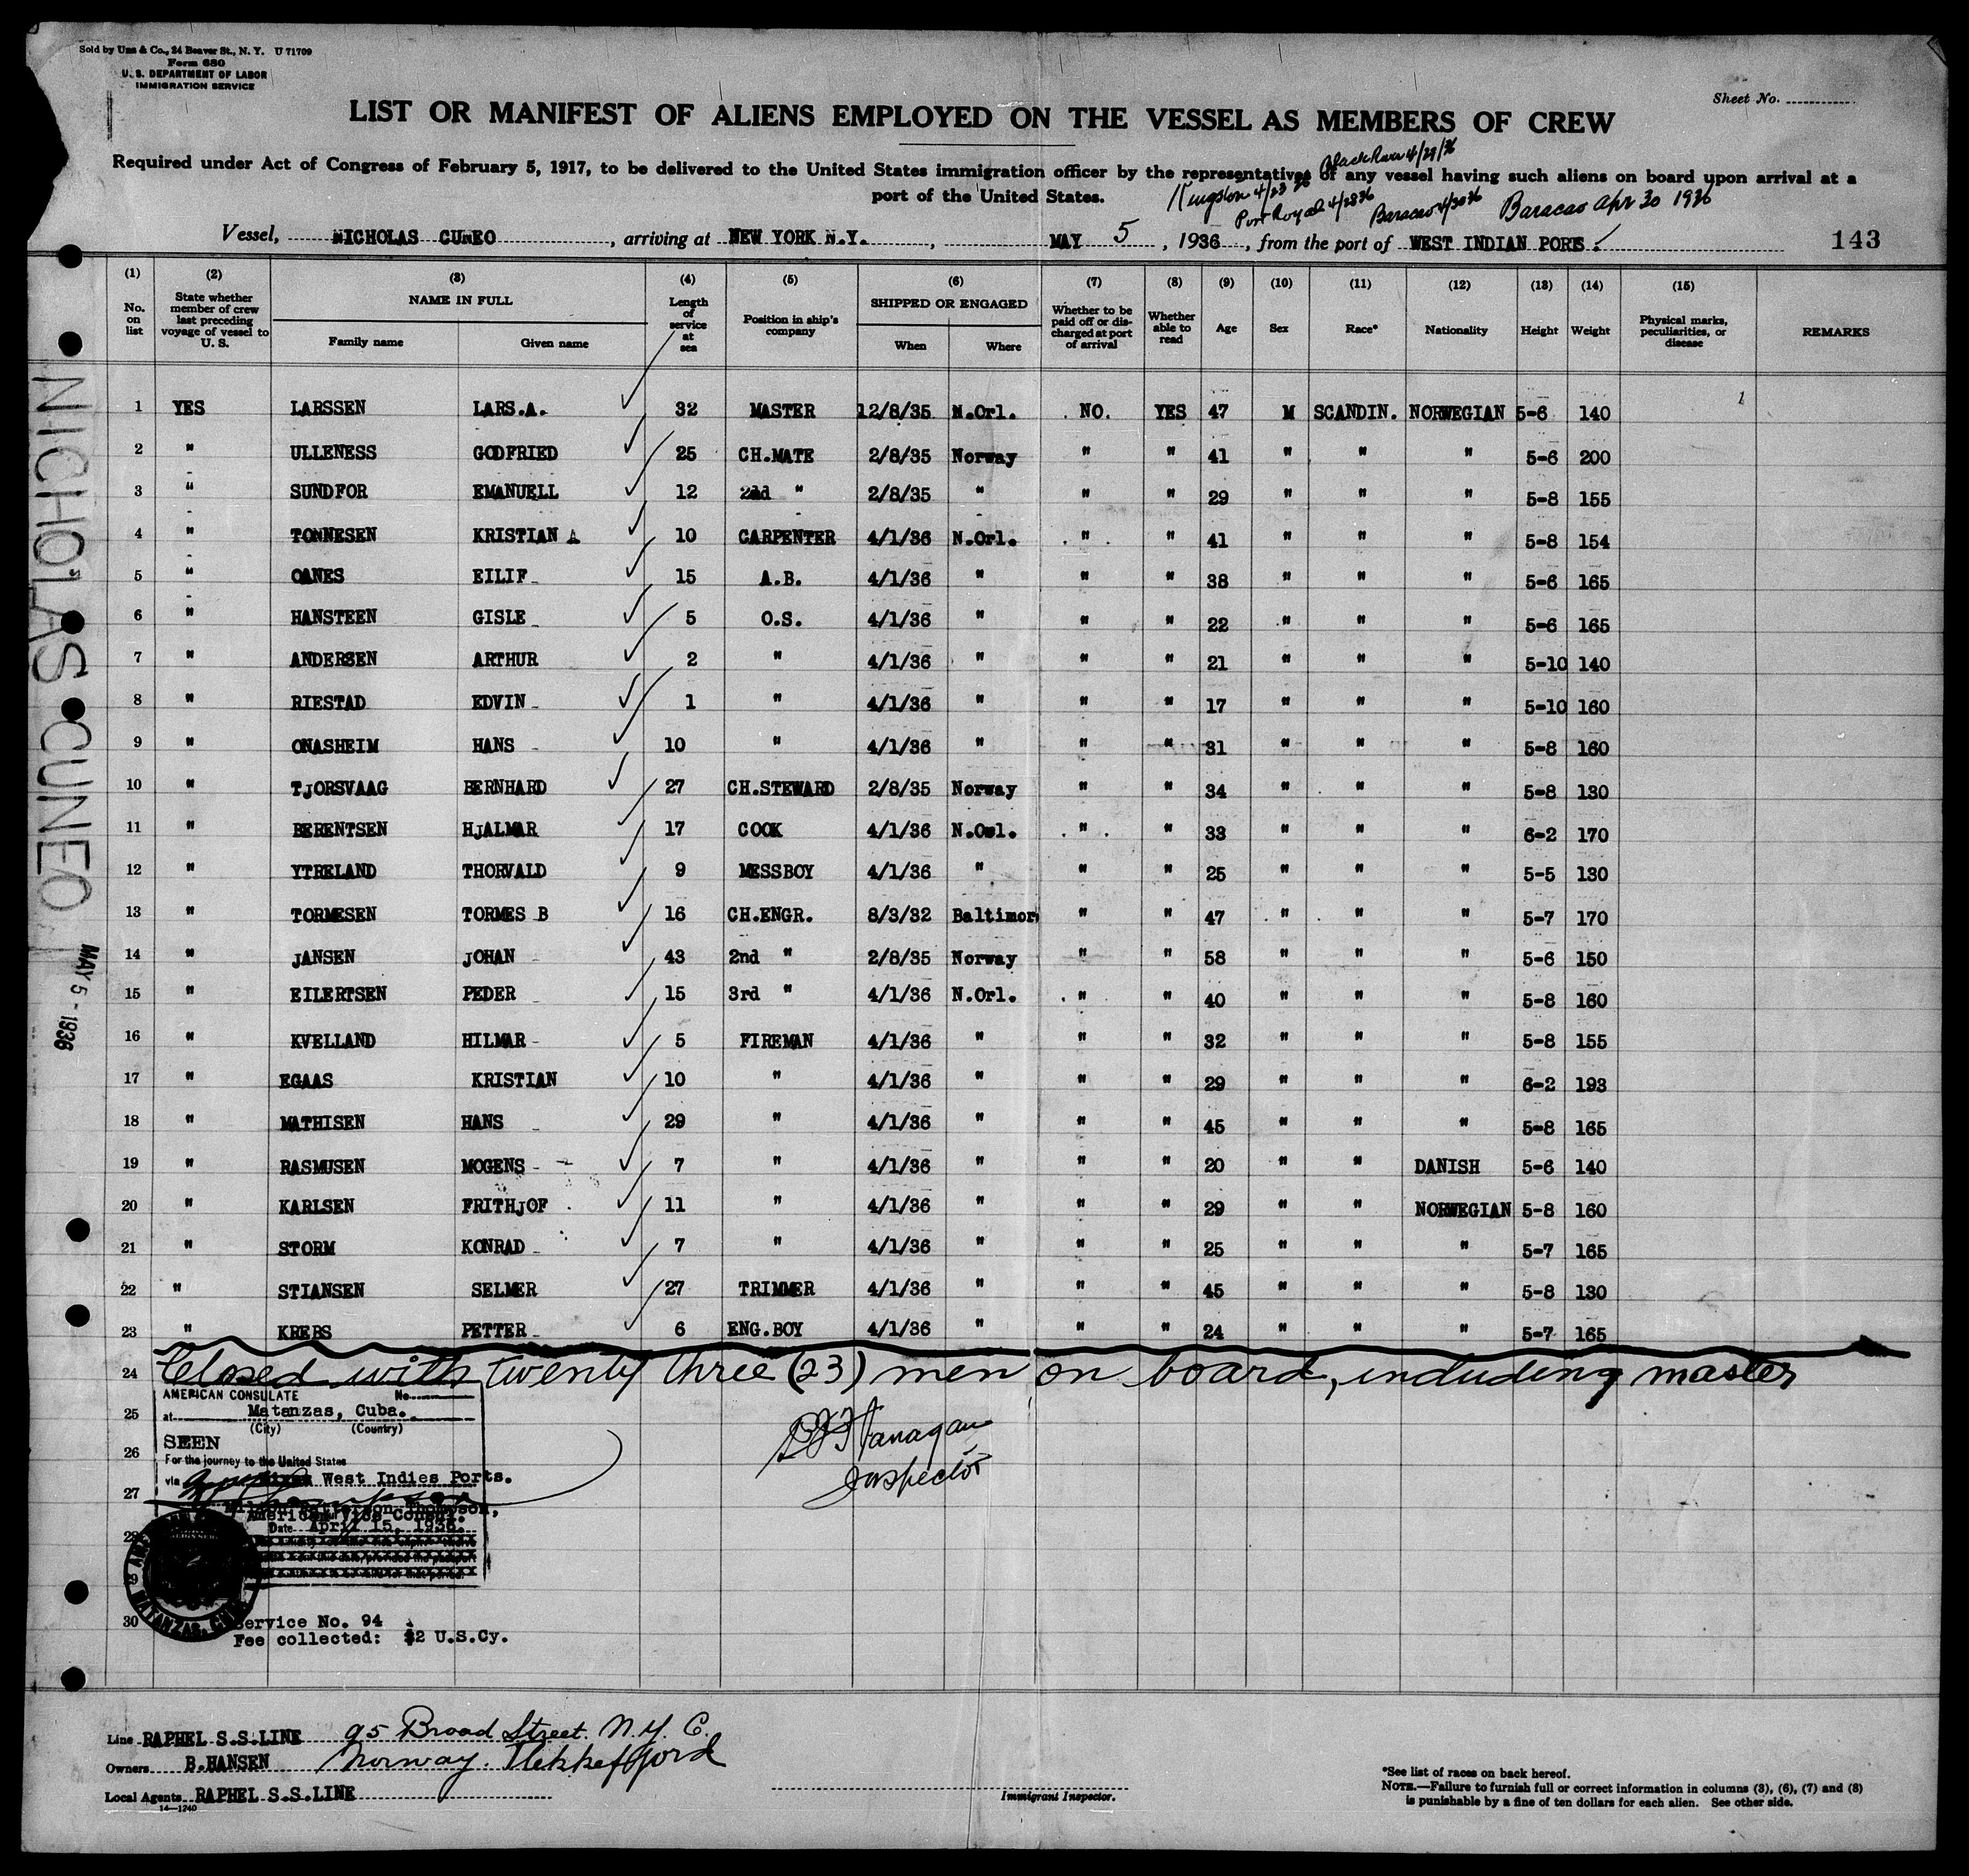 Sold by Unz & Co., 24 Beaver St., N. Y. U 71709
Form 680
U. S. DEPARTMENT OF LABOR
IMMIGRATION SERVICE
Sheet No.
LIST OR MANIFEST OF ALIENS EMPLOYED ON THE VESSEL AS MEMBERS OF CREW
Required under Act of Congress of February 5, 1917, to be delivered to the United States immigration officer by the representatives of any vessel having such aliens on board upon arrival at a
port of the United States.
Black River 4/29/36
Kingston 4/23 36
Port Royal 4/28 36
Baracao 4/30 36
Baracao Apr 30 1936
Vessel, NICHOLAS CUNEO, arriving at NEW YORK N.Y., MAY 5, 1936, from the port of WEST INDIAN PORTS. 143
(1) (2) (3) (4) (5) (6) (7) (8) (9) (10) (11) (12) (13) (14) (15)
No. on list State whether member of crew last preceding voyage of vessel to U. S. NAME IN FULL Length of service at sea Position in ship's company SHIPPED OR ENGAGED Whether to be paid off or discharged at port of arrival Whether able to read Age Sex Race* Nationality Height Weight Physical marks, peculiarities, or disease REMARKS
Family name Given name When Where
1 YES LARSSEN LARS.A. 32 MASTER 12/8/35 N.Orl. NO. YES 47 M SCANDIN. NORWEGIAN 5-6 140 1
2 " ULLENESS GODFRIED 25 CH.MATE 2/8/35 Norway " " 41 " " " 5-6 200
3 " SUNDFOR EMANUELL 12 2dd " 2/8/35 " " " 29 " " " 5-8 155
4 " TONNESEN KRISTIAN A 10 CARPENTER 4/1/36 N.Orl. " " 41 " " " 5-8 154
5 " OANES EILIF 15 A.B. 4/1/36 " " " 38 " " " 5-6 165
6 " HANSTEEN GISLE 5 O.S. 4/1/36 " " " 22 " " " 5-6 165
7 " ANDERSEN ARTHUR 2 " 4/1/36 " " " 21 " " " 5-10 140
8 " RIESTAD EDVIN 1 " 4/1/36 " " " 17 " " " 5-10 160
9 " ONASHEIM HANS 10 " 4/1/36 " " " 31 " " " 5-8 160
10 " TJORSVAAG BERNHARD 27 CH.STEWARD 2/8/35 Norway " " 34 " " " 5-8 130
11 " BERENTSEN HJALMAR 17 COOK 4/1/36 N.Orl. " " 33 " " " 6-2 170
12 " YTRELAND THORVALD 9 MESSBOY 4/1/36 " " " 25 " " " 5-5 130
13 " TORMESEN TORMES B 16 CH.ENGR. 8/3/32 Baltimor " " 47 " " " 5-7 170
14 " JANSEN JOHAN 43 2nd " 2/8/35 Norway " " 58 " " " 5-6 150
15 " EILERTSEN PEDER 15 3rd " 4/1/36 N.Orl. " " 40 " " " 5-8 160
16 " KVELLAND HILMAR 5 FIREMAN 4/1/36 " " " 32 " " " 5-8 155
17 " EGAAS KRISTIAN 10 " 4/1/36 " " " 29 " " " 6-2 193
18 " MATHISEN HANS 29 " 4/1/36 " " " 45 " " " 5-8 165
19 " RASMUSEN MOGENS 7 " 4/1/36 " " " 20 " " DANISH 5-6 140
20 " KARLSEN FRITHJOF 11 " 4/1/36 " " " 29 " " NORWEGIAN 5-8 160
21 " STORM KONRAD 7 " 4/1/36 " " " 25 " " " 5-7 165
22 " STIANSEN SELMER 27 TRIMMER 4/1/36 " " " 45 " " " 5-8 130
23 " KREBS PETTER 6 ENG.BOY 4/1/36 " " " 24 " " " 5-7 165
24 Closed with twenty three (23) men on board, including master
25
26
27
28
29
30
AMERICAN CONSULATE No.
at Matanzas, Cuba.
(City) (Country)
SEEN
For the journey to the United States
via West Indies Ports.
Patterson Thompson,
American Vice Consul.
Date April 15, 1936.
MATANZAS, CUBA
Service No. 94
Fee collected: $2 U.S.Cy.
Flanagan
Inspector
NICHOLAS CUNEO
MAY 5 - 1936
Line RAPHEL S.S.LINE 95 Broad Street. N.Y.C.
Owners B.HANSEN Norway. Flekkefjord
Local Agents RAPHEL S.S.LINE
14—1240
Immigrant Inspector.
*See list of races on back hereof.
NOTE.—Failure to furnish full or correct information in columns (3), (6), (7) and (8)
is punishable by a fine of ten dollars for each alien. See other side.